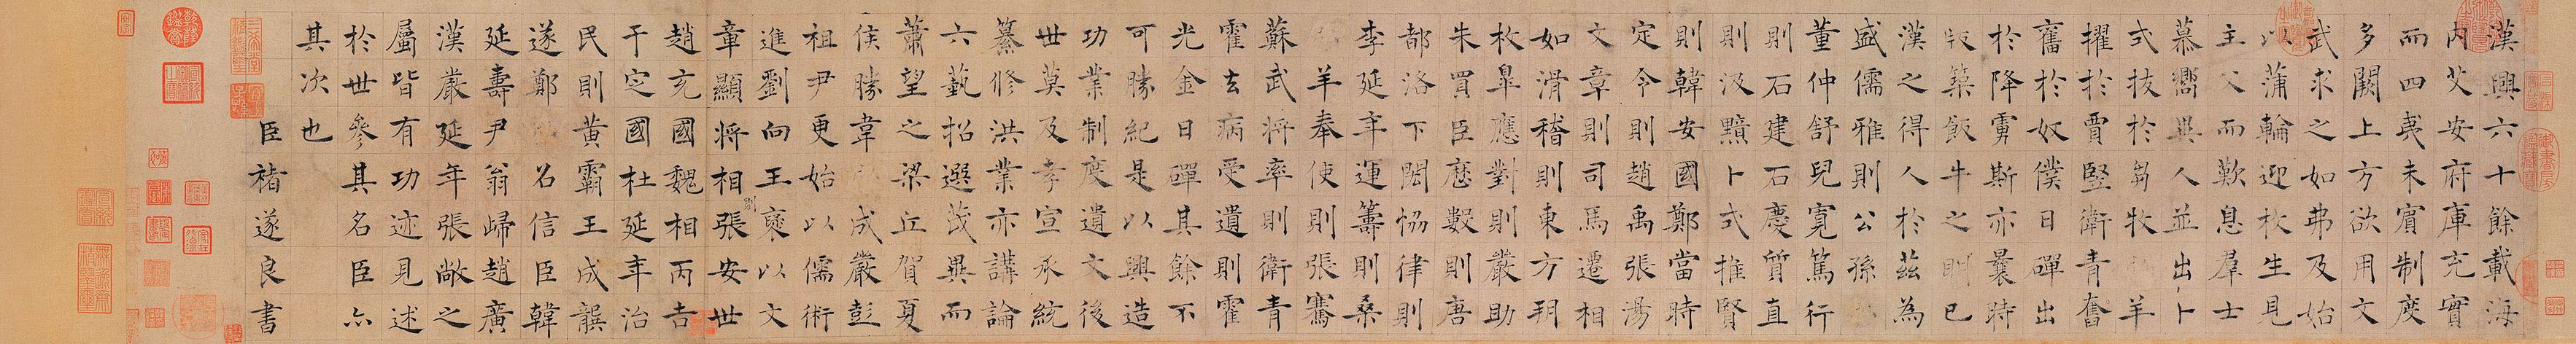 漢興六十餘載海
内艾安府庫充實
而四夷未賓制度
多闕上方欲用文
武求之如弗及始
以蒲輪迎枚生見
主父而歎息羣士
慕嚮異人並出卜
式拔於芻牧羊
擢於賈豎衛青奮
奮於奴僕日磾出
於降虜斯亦曩時
版築飯牛之明已
漢之得人於茲為
盛儒雅則公孫
董仲舒兒寬篤行
則石建石慶質直
則汲黯卜式推賢
則韓安國鄭當時
定令則趙禹張湯
文章則司馬遷相
如滑稽則東方朔
枚皋應對則嚴助
朱買臣歷數則唐
都洛下閎協律則
李延年運籌則桑
羊奉使則張騫
蘇武將率則衛青
霍去病受遺則霍
光金日磾其餘不
可勝紀是以興造
功業制度遺文後
世莫及孝宣承統
纂修洪業亦講論
六藝招選茂異而
蕭望之梁丘賀夏
侯勝韋成嚴彭
祖尹更始以儒術
進劉向王褒以文
章顯將相則張安世
趙充國魏相丙吉
于定國杜延年治
民則黄霸王成龔
遂鄭召信臣韓
延壽尹翁歸趙廣
漢嚴延年張敞之
屬皆有功迹見述
於世參其名臣亦
其次也
臣褚遂良書